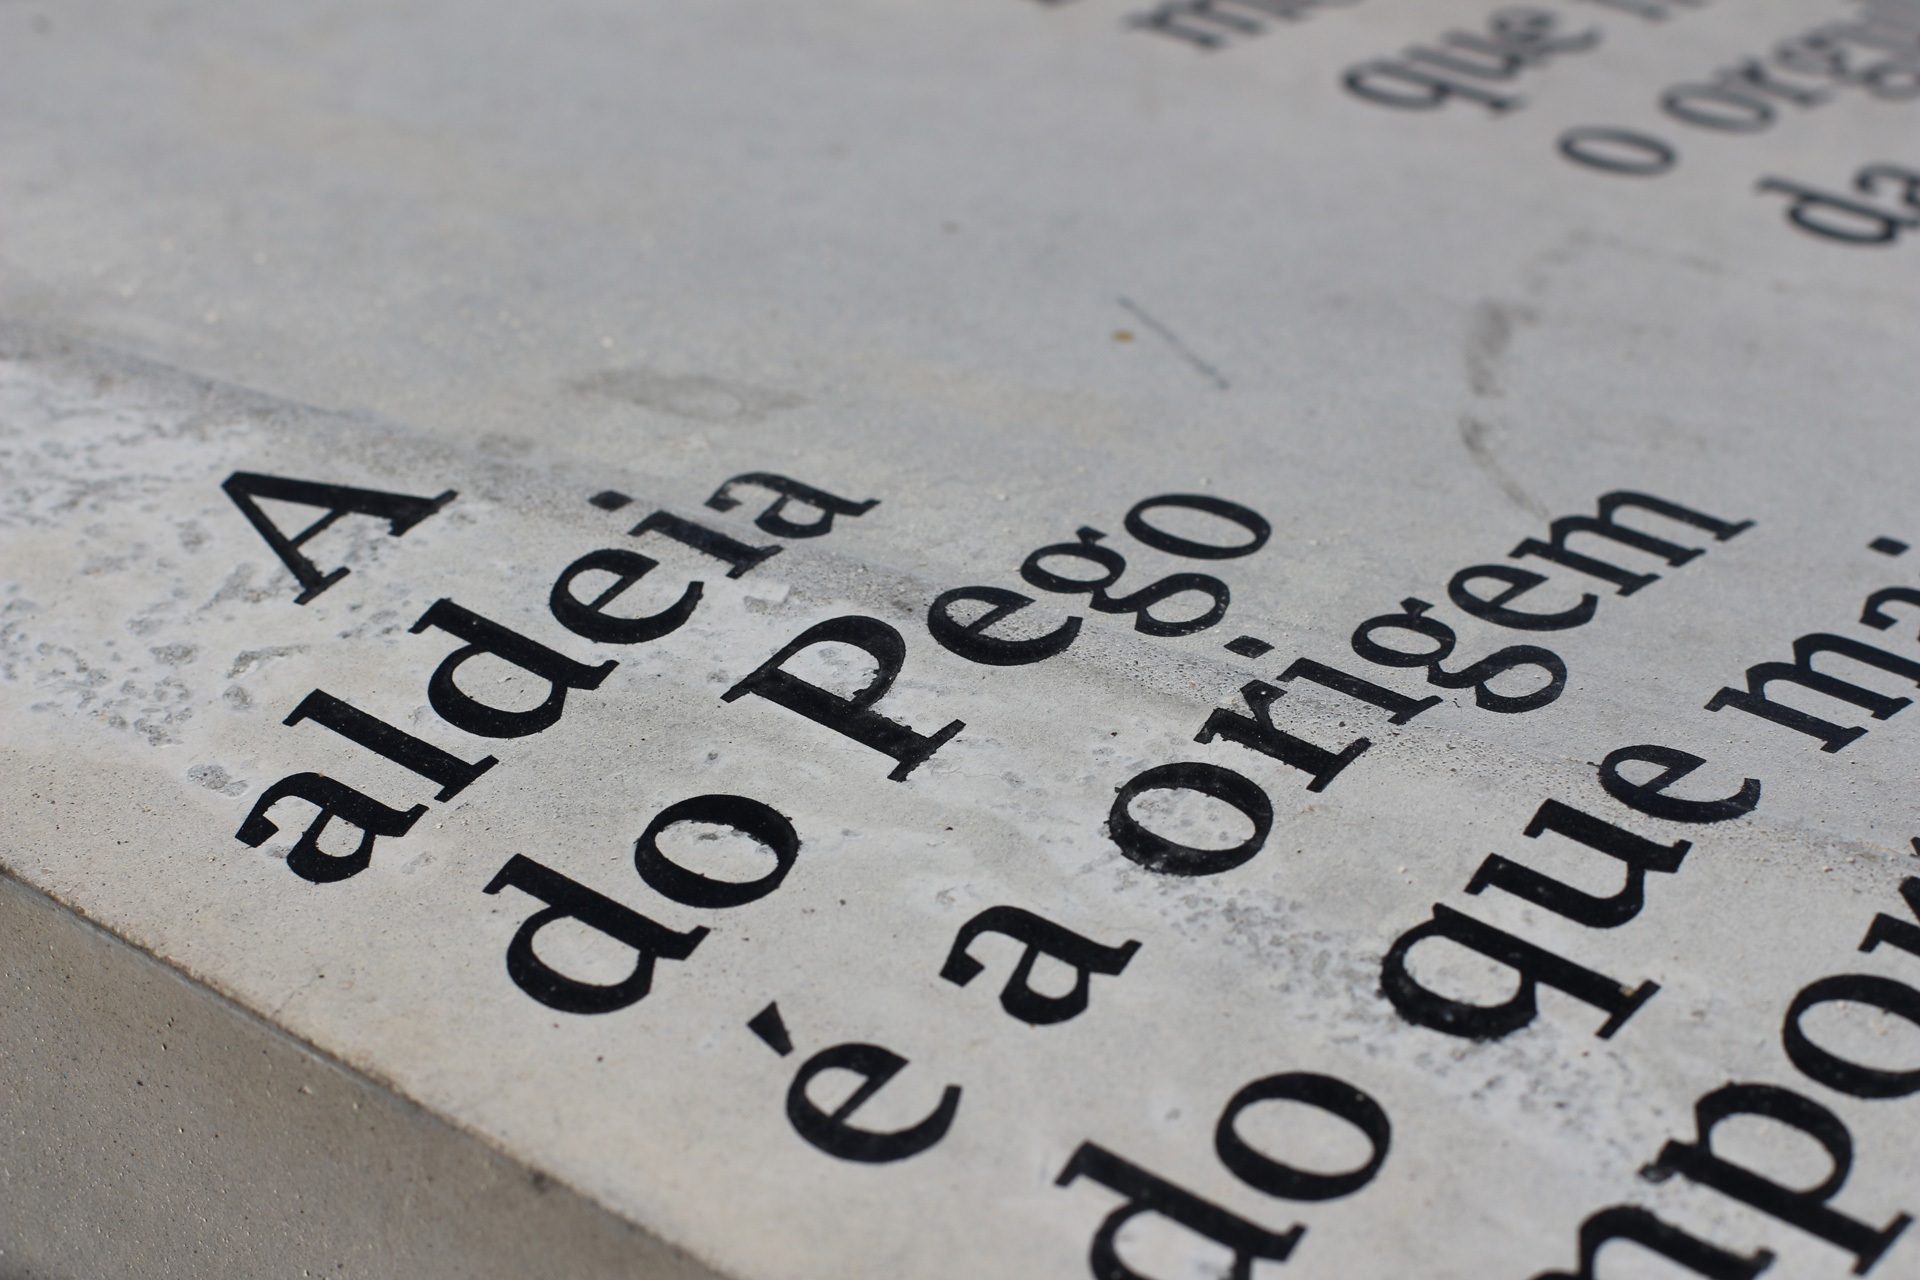 A
aldeia
do Pego
é a origem
do que mai
mpor
que
o orgu
da